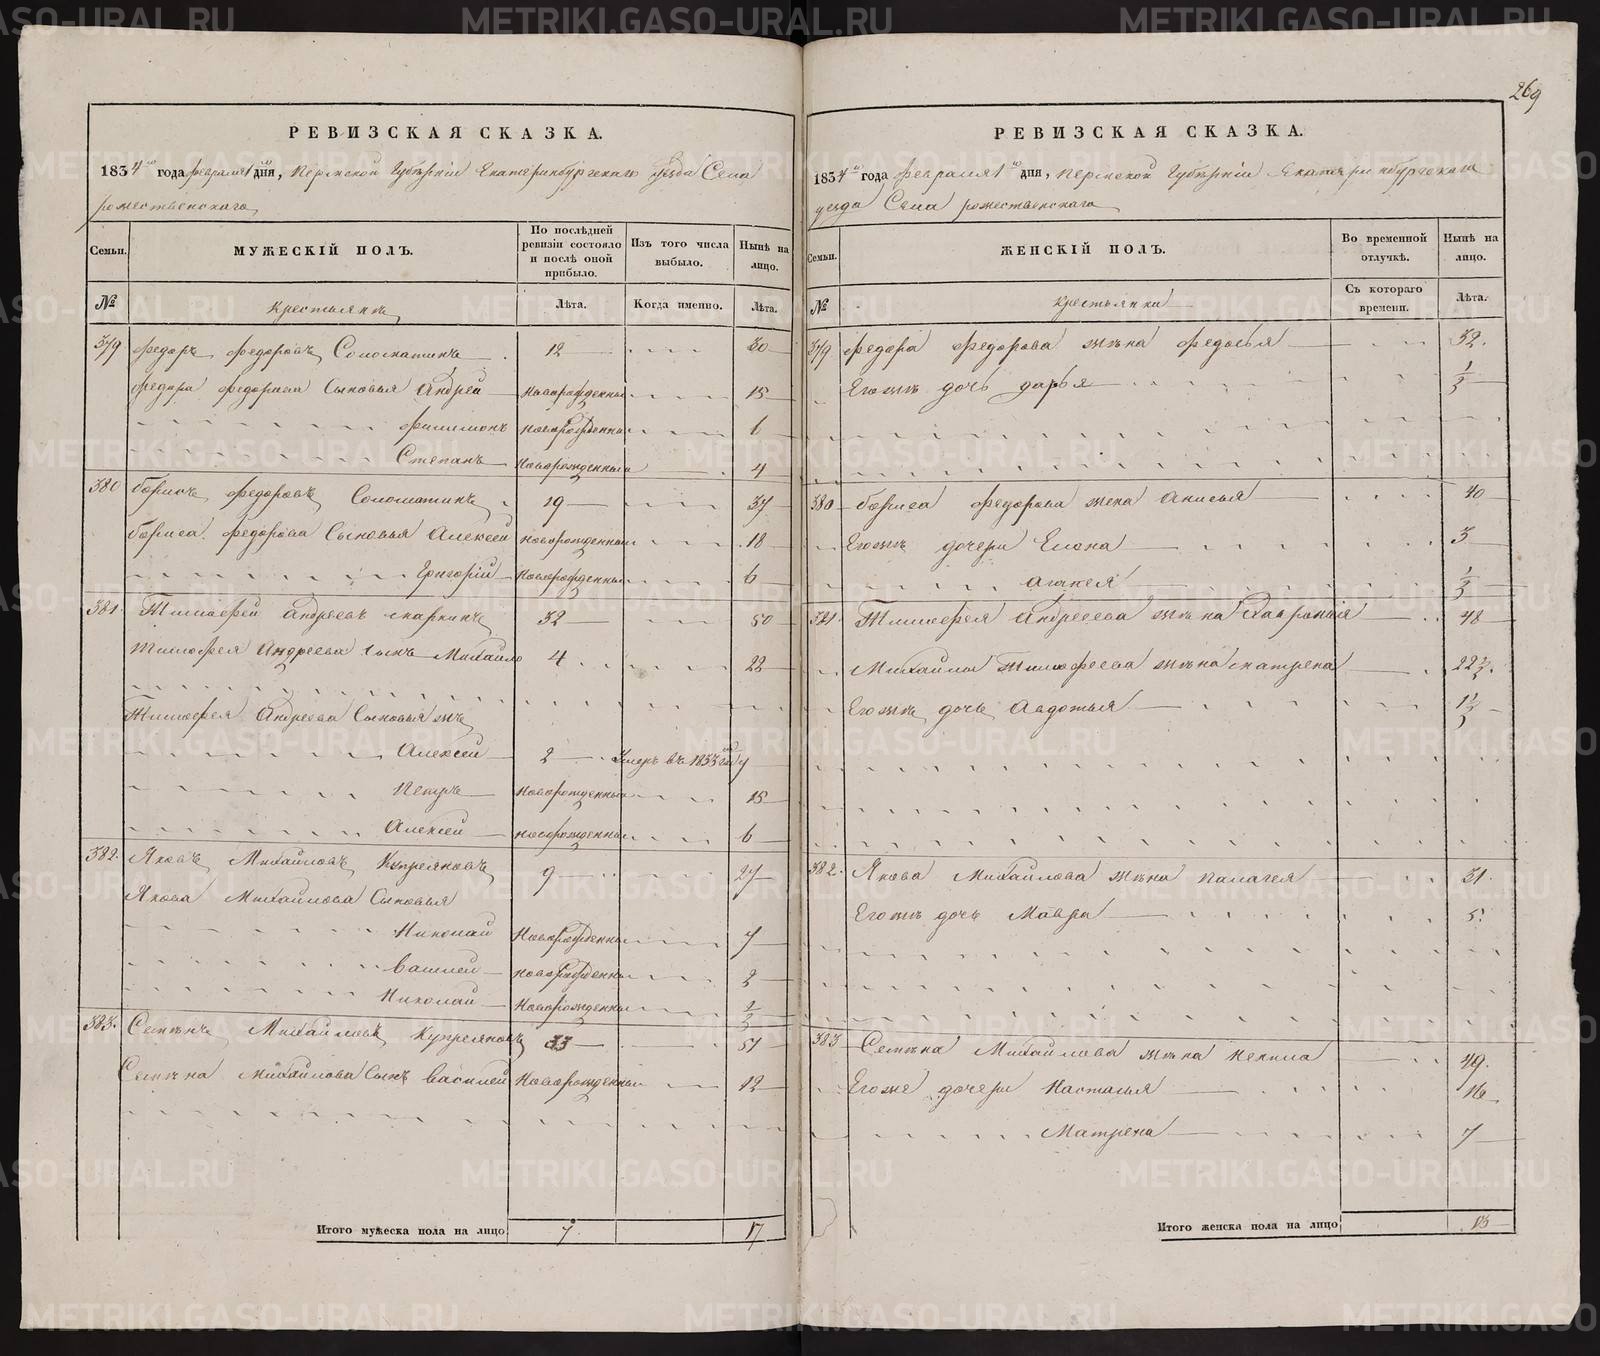 269
РЕВИЗСКАЯ СКАЗКА.
1834 го года февраля 1 го дня, Пермской Губернiи Екатеринбургскаго уезда Села
рожественскаго
Семьи. МУЖЕСКIЙ ПОЛЪ. По послѣдней ревизiи состояло и послѣ оной прибыло. Изъ того числа выбыло. Нынѣ на лицо.
№ Крестьянъ Лѣта. Когда именно. Лѣта.
379 Федоръ Федоровъ 12 30
Федора Федорова Сыновья Андрей Новорожденный 15
Филимонъ новорожденный 6
Степанъ Новорожденный 4
380 Борисъ Федоровъ Соломатинъ 19 37
Бориса Федорова Сыновья Алексей новорожденный 18
Григорiй Новорожденный 6
381 Тимофей Андреевъ 32 50
Тимофея Андреева сынъ Михайло 4 22
Тимофея Андреева Сыновья жъ
Алексей 2 Умеръ въ 1833 год
Петръ Новорожденный 15
Алексей новорожденный 6
382. Яковъ Михайловъ Купреяновъ 9 27
Якова Михайлова Сыновья
Николай Новорожденный 7
Василей новорожденный 2
Николай Новорожденный 1/2
383. Семенъ Михайловъ Купреяновъ 33 51
Семена Михайлова Сынъ Василей Новорожденный 12
Итого мужеска пола на лицо 7 17
РЕВИЗСКАЯ СКАЗКА.
1834 го года февраля 1 го дня, Пермской Губернiи Екатеринбургскаго
уезда Села рожественскаго
Семьи. ЖЕНСКIЙ ПОЛЪ. Во временной отлучкѣ. Нынѣ на лицо.
№ Крестьянки Съ котораго времени. Лѣта.
379 Федора Федорова жена Федосья 32.
Егожъ дочь дарья
380 Бориса Федорова жена Анисья 40
Егожъ дочери Елена 3
Агафея
381 Тимофея Андреева жена 48
Михайлы Тимофеева жена 22
Егожъ дочь Авдотья 1
382. Якова Михайлова жена палагея 31.
Егожъ дочь Мавра 5.
383 Семена Михайлова жена Ненила 49.
Егоже дочери Настасья 16
Матрена 7
Итого женска пола на лицо 13
METRIKI.GASO-URAL.RU